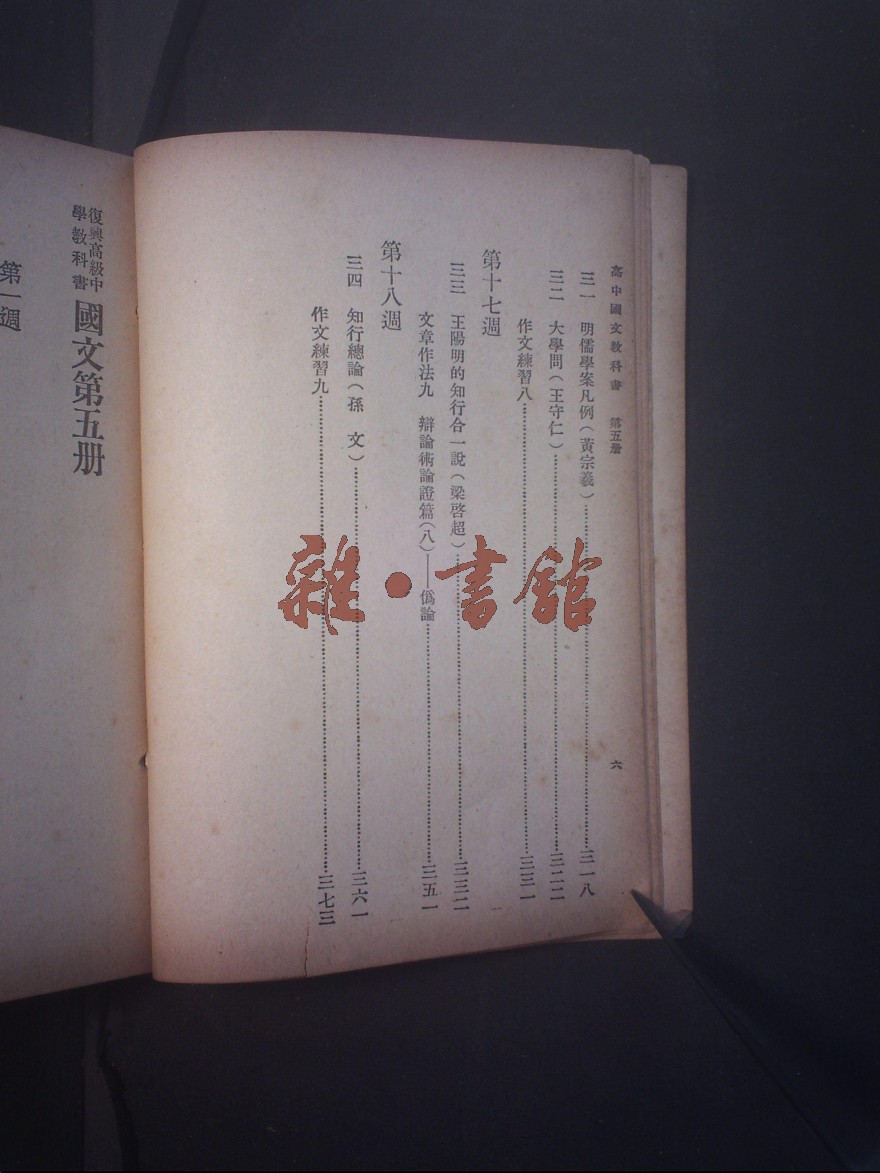 高中國文教科書　第五册　六
三一　明儒學案凡例（黃宗羲）……三一八
三二　大學問（王守仁）……三二二
作文練習八……三三一
第十七週
三三　王陽明的知行合一說（梁啓超）……三三二
文章作法九　辯論術論證篇（八）——僞論……三五一
第十八週
三四　知行總論（孫　文）……三六一
作文練習九……三七三
復興高級中學教科書　國文第五册
第一週
雜・書館